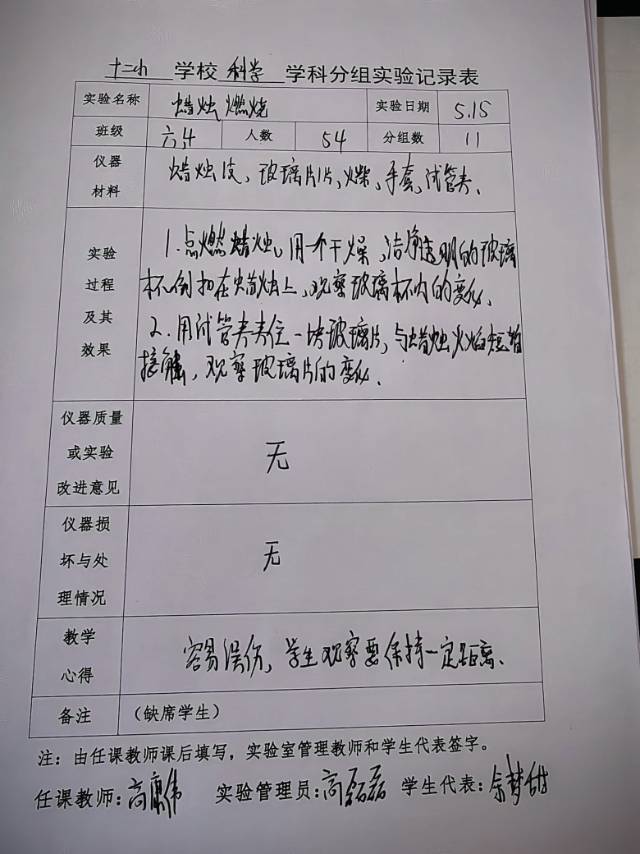 十二小 学校 科学 学科分组实验记录表
实验名称 蜡烛燃烧 实验日期 5.15
班级 六4 人数 54 分组数 11
仪器材料 蜡烛, 玻璃片, 手套, 试管夹.
实验过程及其效果
1. 点燃蜡烛, 用一个干燥、洁净透明的玻璃
杯倒扣在蜡烛上, 观察玻璃杯内的变化.
2. 用试管夹夹住一块玻璃片, 与蜡烛火焰短暂
接触, 观察玻璃片的变化.
仪器质量或实验改进意见 无
仪器损坏与处理情况 无
教学心得 容易误伤, 学生观察要保持一定距离.
备注 (缺席学生)
注:由任课教师课后填写,实验室管理教师和学生代表签字。
任课教师:高康伟 实验管理员:高磊磊 学生代表:余梦甜